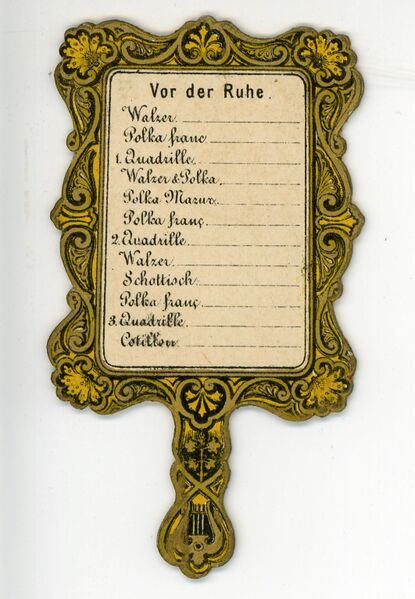 Vor der Ruhe.
Walzer
Polka franc
1. Quadrille
Walzer & Polka
Polka Mazur.
Polka franç.
2. Quadrille
Walzer
Schottisch
Polka franç.
3. Quadrille.
Cotillon